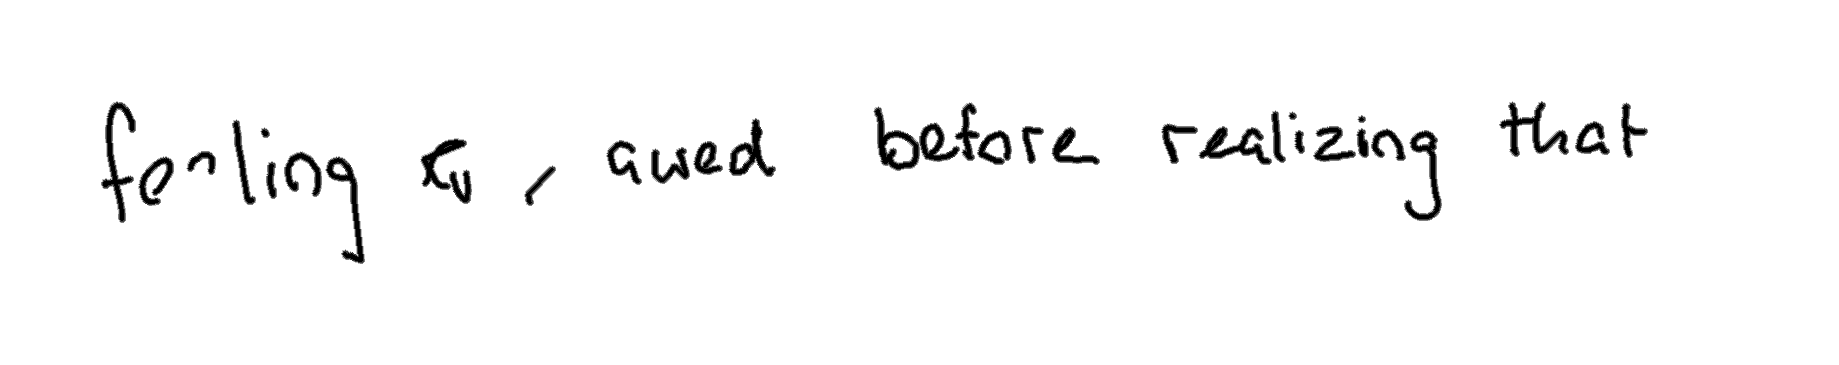 feeling , awed before realizing that